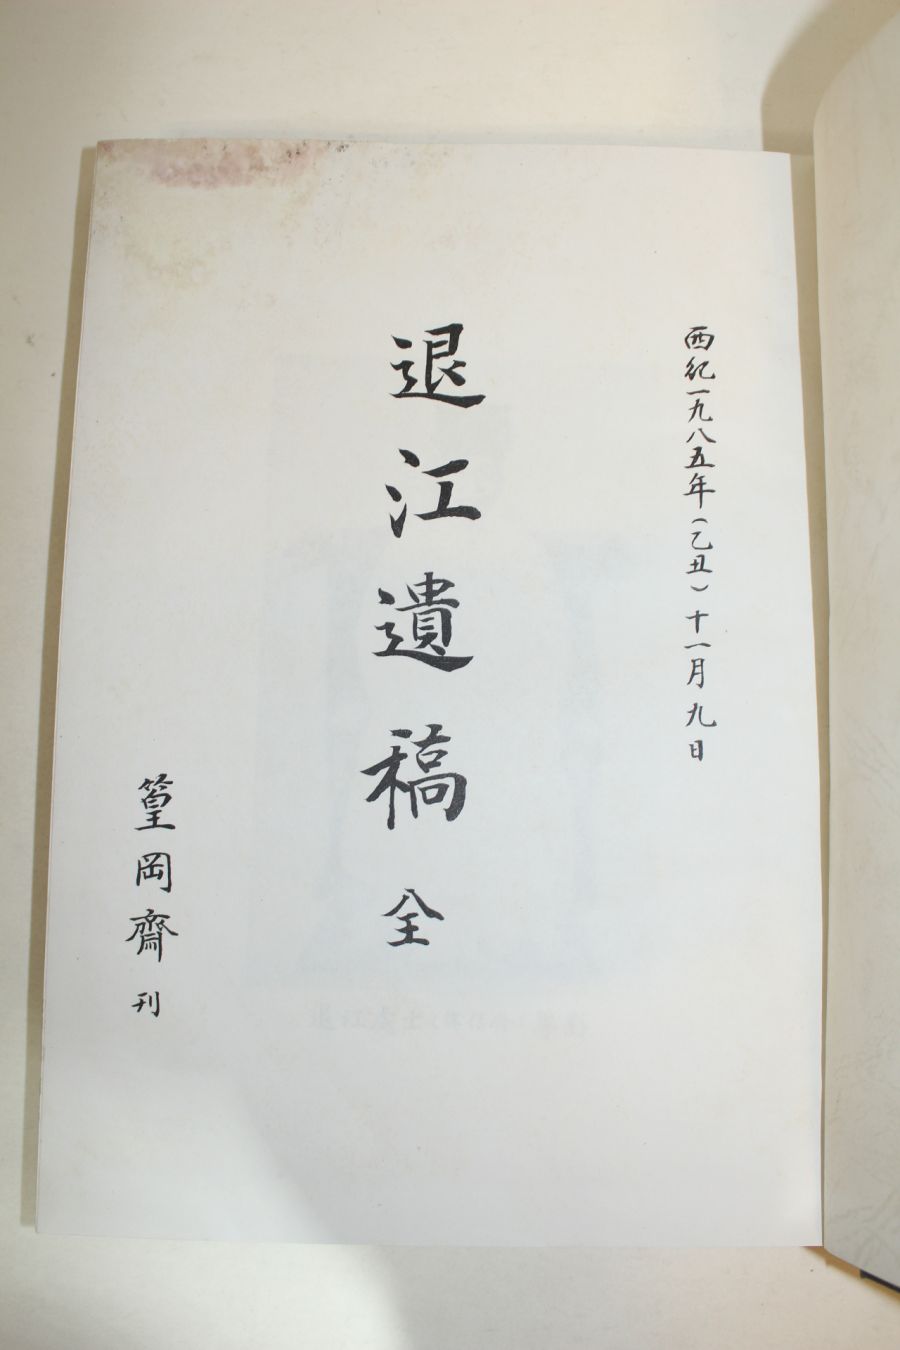 西紀一九八五年(乙丑)十一月九日
退江遺稿 全
篁岡齋 刊